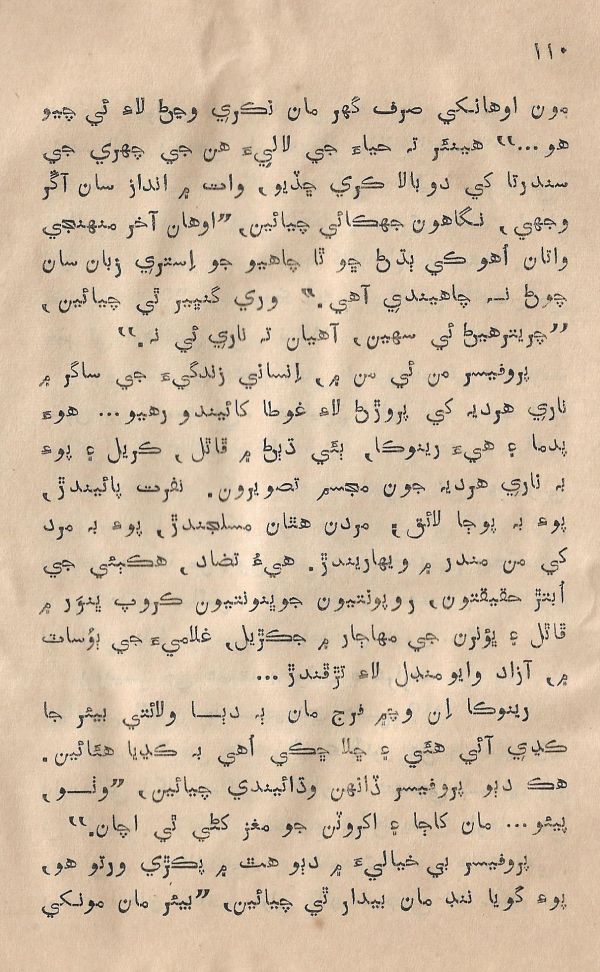 ١١٠
مون اوهانکي صرف گهر مان نڪري وڃڻ لاءِ ئي چيو
هو...“ هينئر تہ حياءَ جي لاليءَ هن جي چهري جي
سندرتا کي دوبالا ڪري ڇڏيو، وات ۾ انداز سان آڱر
وجهي، نگاهون جهڪائي چيائين، ”اوهان آخر منهنجي
واتان اُهو ڪي ٻڌڻ ڇو ٿا چاهيو جو اِستري زبان سان
چوڻ نہ چاهيندي آهي.“ وري گنڀير ٿي چيائين،
”چريترهيڻ ئي سهين، آهيان تہ ناري ئي نہ.“
پروفيسر من ئي من ۾، اِنساني زندگيءَ جي ساگر ۾
ناري هرديہ کي پروڙڻ لاءِ غوطا کائيندو رهيو... هوءَ
پدما ۽ هيءَ رينوڪا، ٻئي ڌٻڻ ۾ ڦاٿل، ڪريل ۽ پوءِ
بہ ناري هرديہ جون مجسم تصويرون. نفرت پائيندڙ،
پوءِ بہ پوڄا لائق؛ مردن هٿان مسلجندڙ، پوءِ بہ مرد
کي من مندر ۾ ويهاريندڙ. هيءُ تضاد، هڪٻئي جي
اُبتڙ حقيقتون، روپونتيون جوڀنونتيون ڪروپ ڀنوَر ۾
ڦاٿل ۽ ڀؤنرن جي مهاڄار ۾ جڪڙيل، غلاميءَ جي ٻُوسات
۾، آزاد وايومنڊل لاءِ تڙڦندڙ...
رينوڪا اِن وچ۾ فرج مان ٻہ دٻا ولائتي بيئر جا
ڪڍي آئي هئي ۽ ڇلا ڇڪي اُهي بہ کڍيا هئائين.
هڪ دٻو پروفيسر ڏانهن وڌائيندي چيائين، ”وٺو،
پيئو... مان ڪاڄا ۽ اکروٽن جو مغز کڻي ٿي اچان.“
پروفيسر بي خياليءَ ۾ دٻو هٿ ۾ پڪڙي ورتو هو،
پوءِ گويا ننڊ مان بيدار ٿي چيائين، ”بيئر مان مونکي